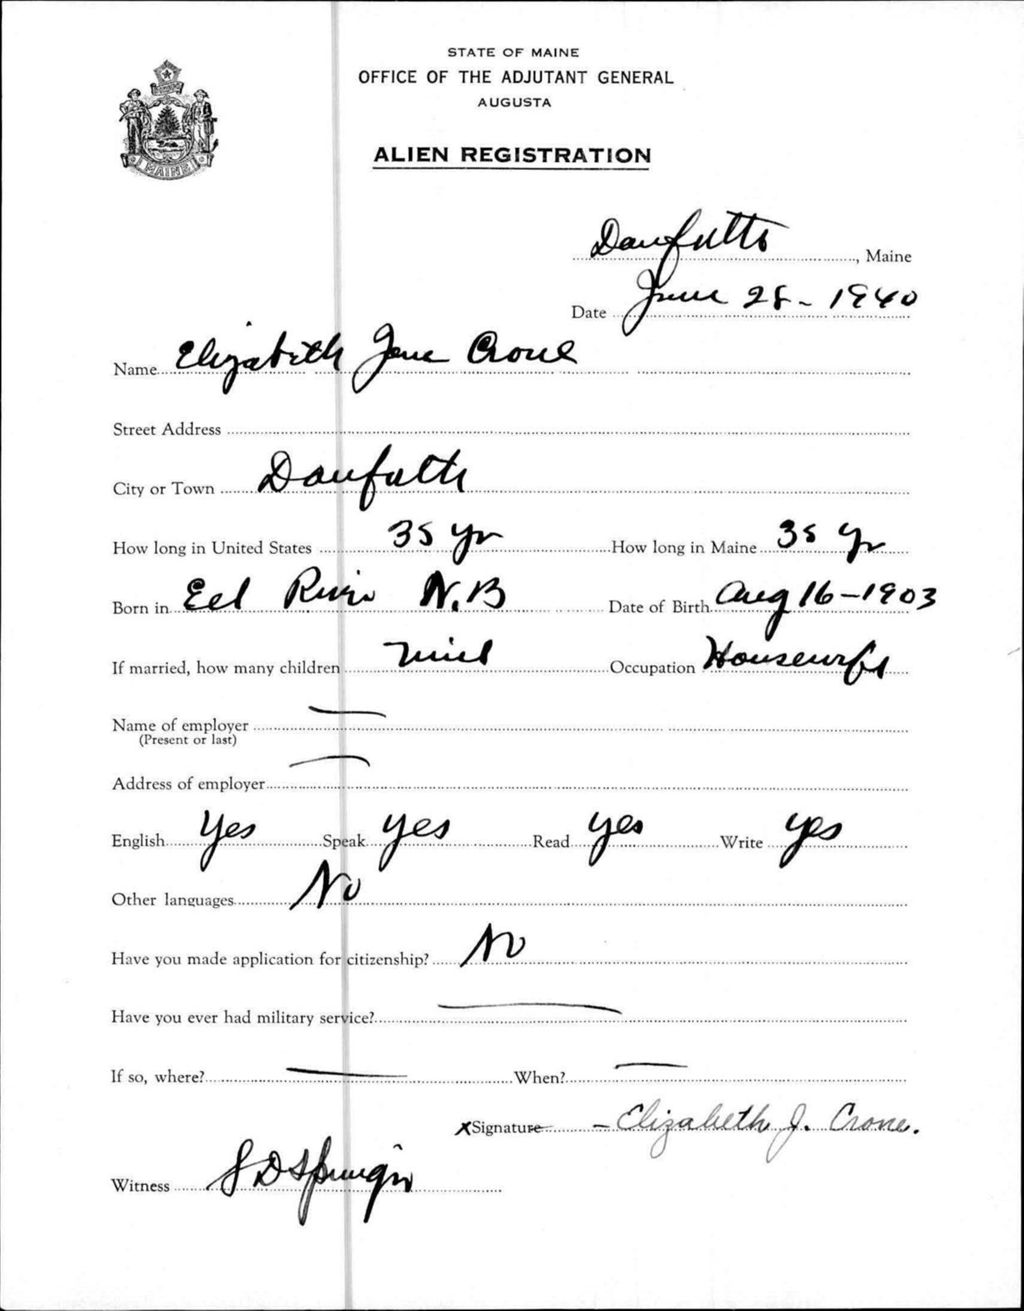 STATE OF MAINE
OFFICE OF THE ADJUTANT GENERAL
AUGUSTA
ALIEN REGISTRATION
MAINE
Danforth, Maine
Date June 28 - 1940
Name Elizabeth Jane Crone
Street Address
City or Town Danforth
How long in United States 35 yr How long in Maine 35 yr
Born in Eel River N.B Date of Birth Aug 16 - 1903
If married, how many children Occupation Housewife
Name of employer
(Present or last)
Address of employer
English Yes Speak yes Read yes Write yes
Other languages No
Have you made application for citizenship? No
Have you ever had military service?
If so, where? When?
x Signature - Elizabeth J. Crone.
Witness S D